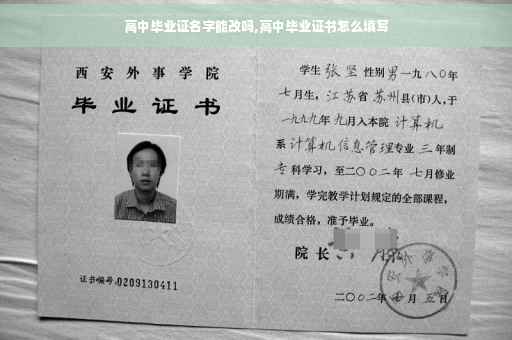 高中毕业证名字能改吗,高中毕业证书怎么填写
西安外事学院
毕业证书
证书编号:0209130411
学生 张坚 性别 男 一九八〇年
七月生, 江苏省 苏州县(市)人,于
一九九九年 九月入本院 计算机
系 计算机信息管理 专业 三 年制
专科学习,至二〇〇二年 七月修业
期满,学完教学计划规定的全部课程,
成绩合格,准予毕业。
院长
二〇〇二年 月 五日